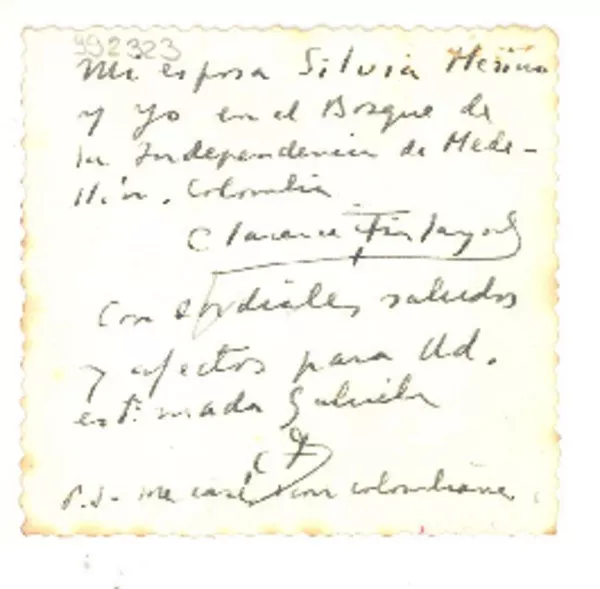 992323
Mi esposa Silvia Merino
y yo en el Bosque de
la Independencia de Mede-
llín. Colombia
Clarence Finlayson
Con cordiales saludos
y afectos para Ud.
estimada Gabriela
CF
P.S- me casé con colombiana.